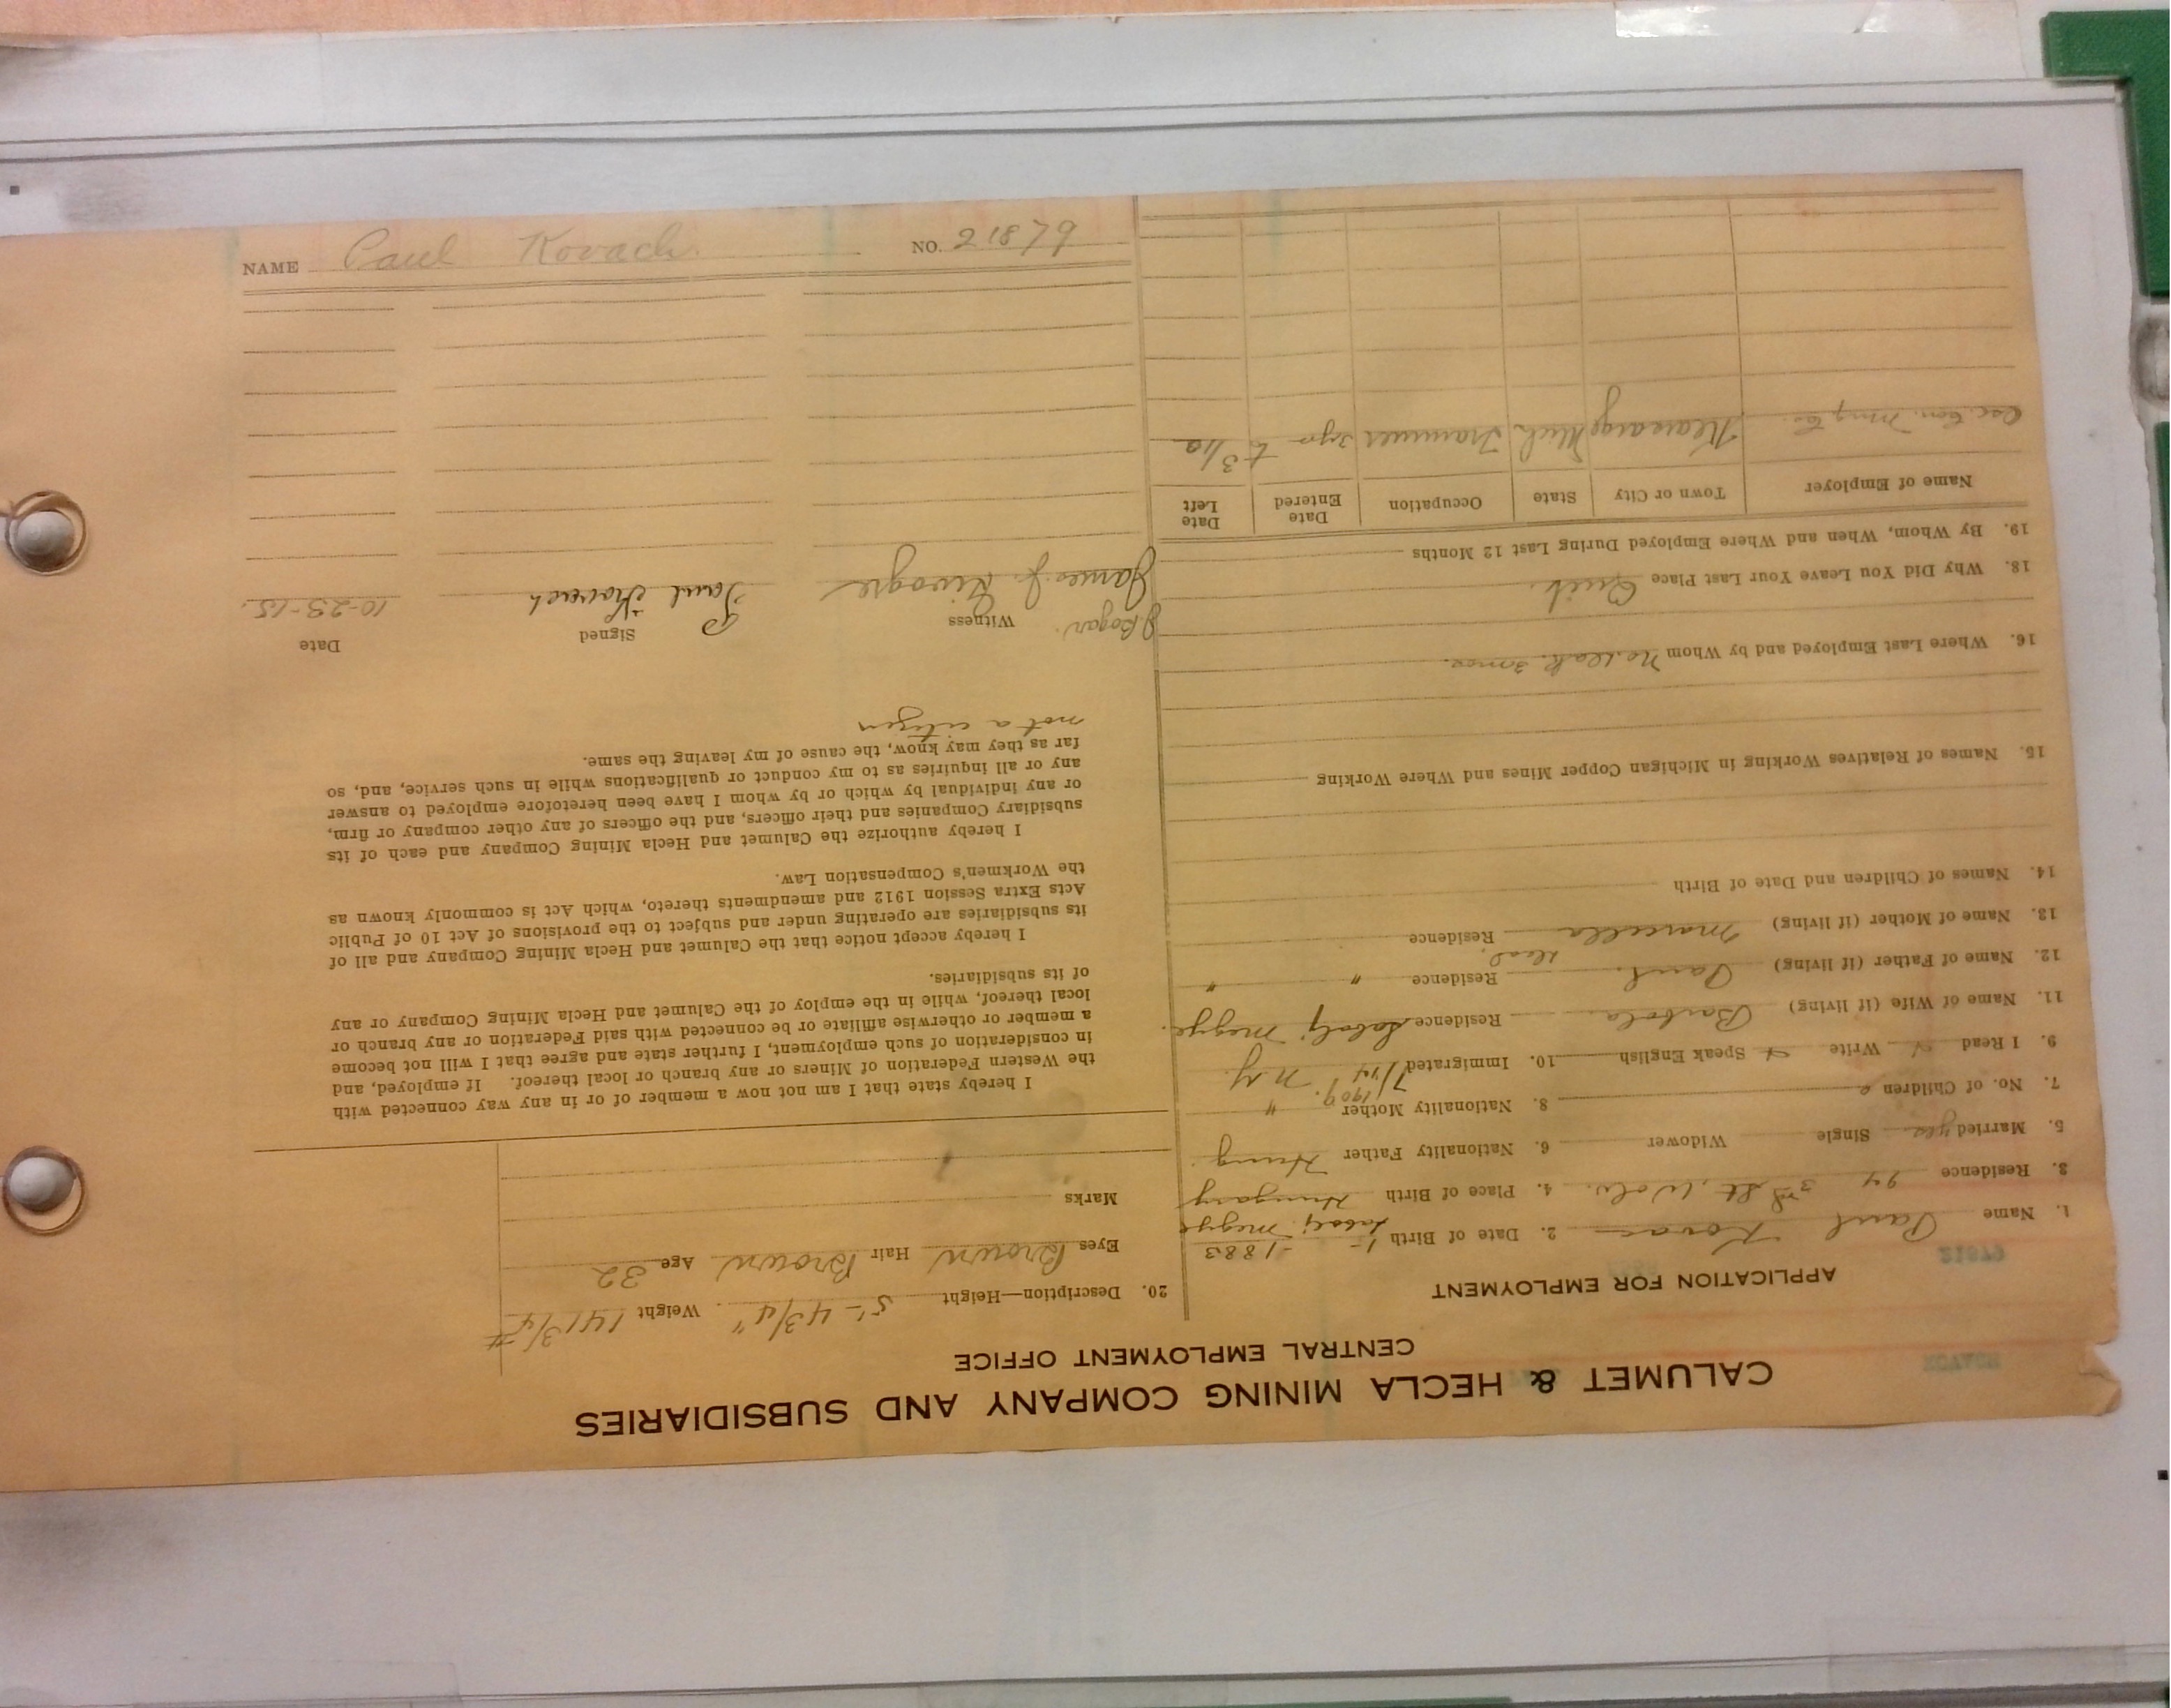 CALUMET & HECLA MINING COMPANY AND SUBSIDIARIES
CENTRAL EMPLOYMENT OFFICE
APPLICATION FOR EMPLOYMENT
1. Name Paul Kovac 2. Date of Birth 1- -1883
3. Residence 94 3rd St. Wolv. 4. Place of Birth Hungary
5. Married yes Single Widower 6. Nationality Father Hung.
7. No. of Children 8. Nationality Mother "
9. I Read Write Speak English 10. Immigrated 1909. N.Y.
11. Name of Wife (if living) Residence megye.
12. Name of Father (if living) Paul. Dead. Residence " "
13. Name of Mother (if living) Marcella Residence
14. Names of Children and Date of Birth
15. Names of Relatives Working in Michigan Copper Mines and Where Working
16. Where Last Employed and by Whom
18. Why Did You Leave Your Last Place Quit.
19. By Whom, When and Where Employed During Last 12 Months
Name of Employer Town or City State Occupation Date Entered Date Left
Osc. Con. Mng Co. Kearsarge Mich Trammer
20. Description—Height 5'-4 3/4" Weight 141 3/4 #
Eyes Brown Hair Brown Age 32
Marks
I hereby state that I am not now a member of or in any way connected with
the Western Federation of Miners or any branch or local thereof. If employed, and
in consideration of such employment, I further state and agree that I will not become
a member or otherwise affiliate or be connected with said Federation or any branch or
local thereof, while in the employ of the Calumet and Hecla Mining Company or any
of its subsidiaries.
I hereby accept notice that the Calumet and Hecla Mining Company and all of
its subsidiaries are operating under and subject to the provisions of Act 10 of Public
Acts Extra Session 1912 and amendments thereto, which Act is commonly known as
the Workmen's Compensation Law.
I hereby authorize the Calumet and Hecla Mining Company and each of its
subsidiary Companies and their officers, and the officers of any other company or firm,
or any individual by which or by whom I have been heretofore employed to answer
any or all inquiries as to my conduct or qualifications while in such service, and, so
far as they may know, the cause of my leaving the same.
not a citizen
Witness Signed Date
J. Bogan
James J. Paul Kovach 10-23-15.
NAME Paul Kovach NO. 21879